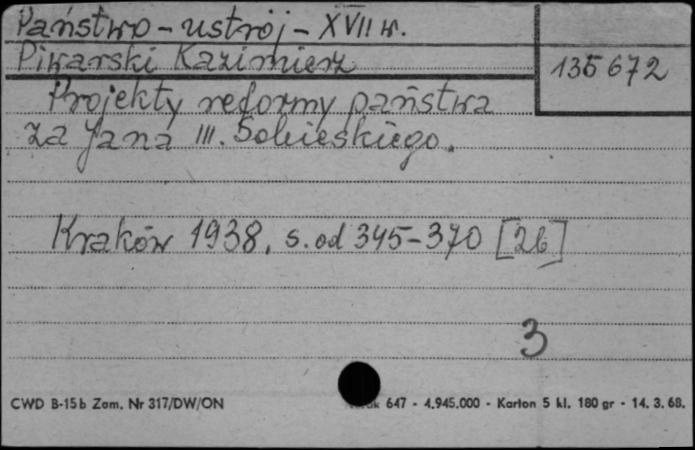 Państwo - ustrój - XVII w.
Piwarski Kazimierz
135672
Projekty reformy państwa
za Jana III. Sobieskiego.
Kraków 1938. s. od 345-370 [26]
3
CWD B-15b Zam. Nr 317/DW/ON
647 - 4.945.000 - Karton 5 kl. 180 gr - 14. 3. 68.